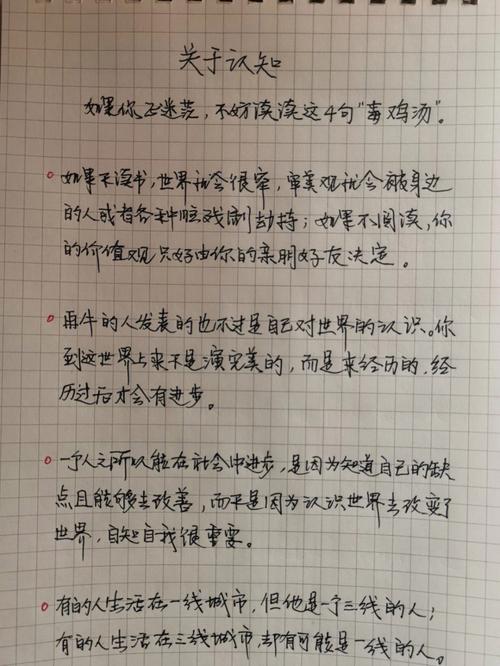 关于认知
如果你正迷茫，不妨读读这4句“毒鸡汤”。
如果不读书，世界就会很窄，审美观就会被身边
的人或者各种脑残剧劫持；如果不阅读，你
的价值观只好由你的亲朋好友决定。
再牛的人发表的也不过是自己对世界的认识。你
到这世界上来不是演完美的，而是来经历的，经
历过后才会有进步。
一个人之所以能在社会中进步，是因为知道自己的缺
点且能够去改善，而不是因为认识世界去改变了
世界，自知自我很重要。
有的人生活在一线城市，但他是一个三线的人；
有的人生活在三线城市，却有可能是一线的人。